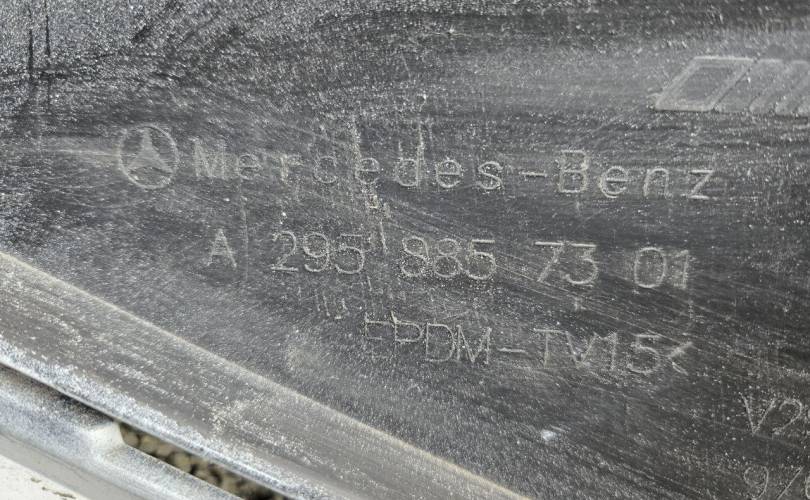 Mercedes-Benz
A 295 885 73 01
EPDM-TV15<
V2
9/